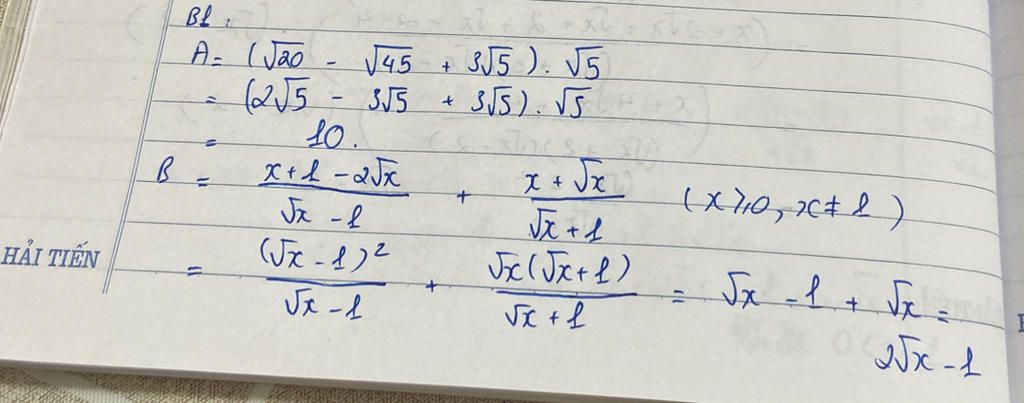 B1:
A = (√20 - √45 + 3√5) . √5
= (2√5 - 3√5 + 3√5) . √5
= 10.
B = (x + 1 - 2√x)/(√x - 1) + (x + √x)/(√x + 1) (x ⩾ 0, x ≠ 1)
HẢI TIẾN
= (√x - 1)²/(√x - 1) + √x(√x + 1)/(√x + 1) = √x - 1 + √x =
2√x - 1